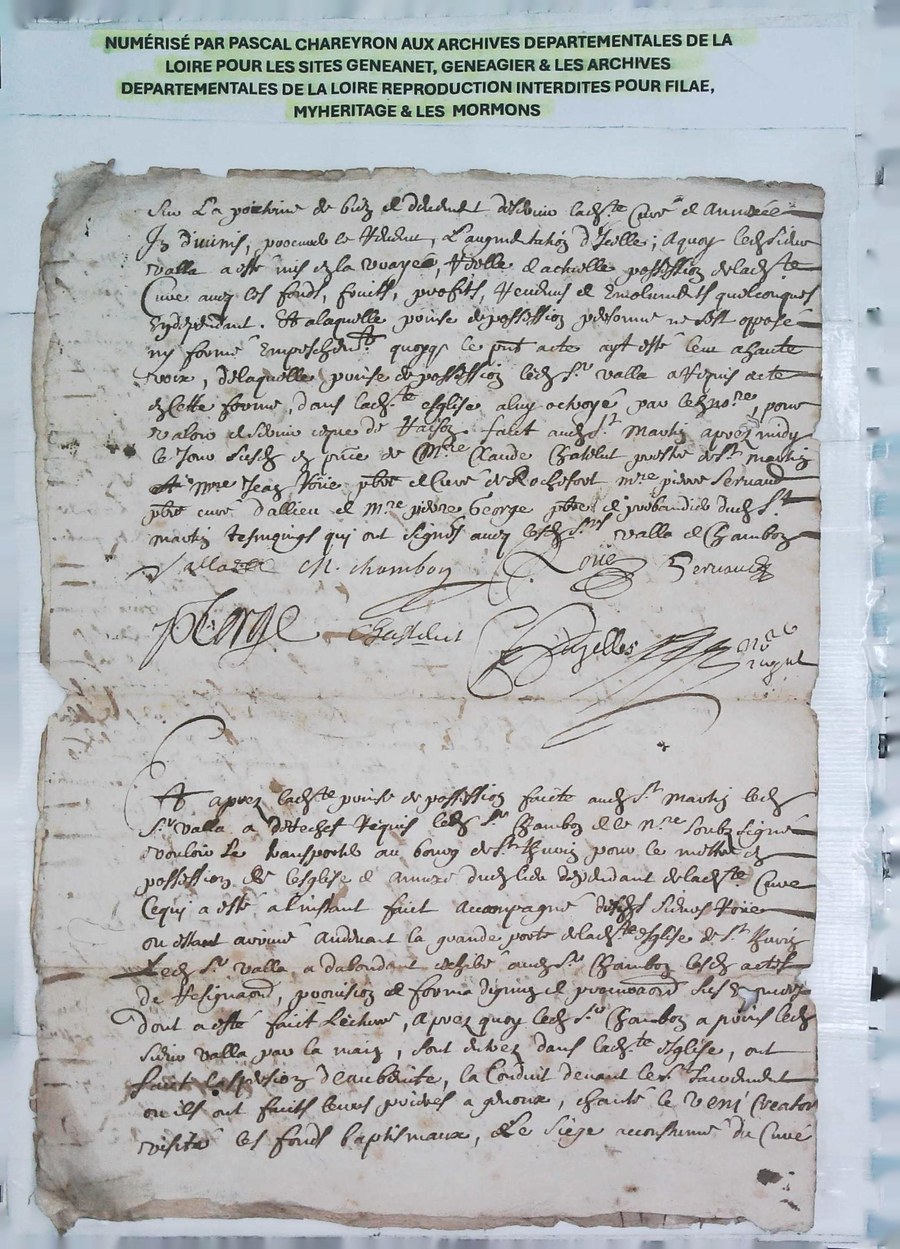 NUMÉRISÉ PAR PASCAL CHAREYRON AUX ARCHIVES DEPARTEMENTALES DE LA
LOIRE POUR LES SITES GENEANET, GENEAGIER & LES ARCHIVES
DEPARTEMENTALES DE LA LOIRE REPRODUCTION INTERDITES POUR FILAE,
MYHERITAGE & LES MORMONS
Sur La de bien et deuement desseruir lad.te Cure et Annexe
In diuinis, procurer le , L'augmentation d'Icelle; Aquoy led. sieur
valla a esté mis en la vraye, réelle et actuelle possession de lad.te
Cure auec les fonds, fruits, profits, reuenus et Emoluments quelconques
En dependant. Et a laquelle prinse de possession personne ne s'est oposé
ny formé Empeschem.t quoyq. le p.nt acte ayt esté leu a haute
voix, de laquelle prinse de possession led. s.r valla a requis acte
en cette forme, dans lad.te esglise a luy octroyé par led. no.re, pour
valoir et seruir ce que de raison. fait aud. S.t Martin apres midy
le Jour susd. en p.nce de M.re Claude Chatelut prestre de S.t Martin
M.re Jean Roüe pbre et Curé de Rochefort m.re pierre Seruaud
pbre curé d'allieu et M.re pierre George pbre et prebandier dud. S.t
martin tesmoings qui ont signés auec lesd. s.rs valla et Chambon
Valla Ch. Chambon Roüe Seruaud
PGeorge Chastelut
Et apres lad.te prinse de possession faite aud. S.t Martin led.
S.r valla a derechef requis led. S.r Chambon et le n.re soubsigné
vouloir se transporter au bourg de S.t pour le mettre en
possession de l'esglise et annexe dud. lieu dependant de lad.te Cure
Ce qui a esté a l'instant fait accompagné desd. sieurs Roüe
ou estant arriué audeuant la grande porte de lad.te esglise de S.t
Led. S.r valla a dabondant exhibé aud. S.r Chambon lesd. actes
de resignaon, prouision et forma dignum et susd.
dont a esté fait lecture, apres quoy led. S.r Chambon a prins led.
sieur valla par la main, sont entrez dans lad.te esglise, ont
faict l'aspersion d'eau beniste, la Conduit deuant le S.t Sacrement
ou ils ont faicts leurs prieres a genoux, chanté le Veni Creator
visité les fonds baptismaux, et le siege accoustumé du Curé